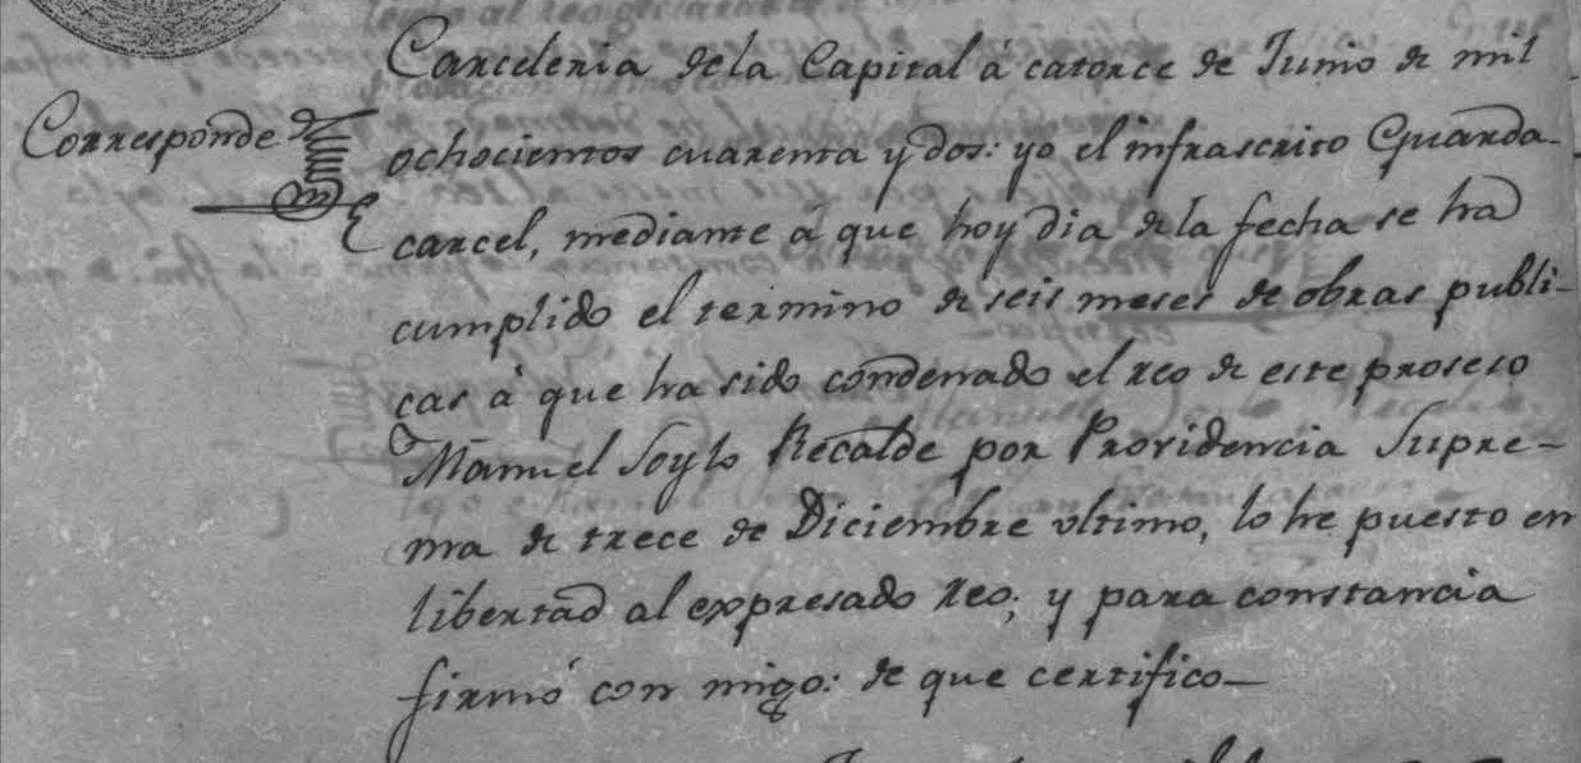 Carceleria dela Capital á catorce de Junio de mil
Corresponde
ochocientos cuarenta y dos: yo el infrascrito Guarda-
carcel, mediante á que hoy dia de la fecha se ha
cumplido el termino de seis meses de obras publi-
cas á que ha sido condenado el reo de este proseso
Manuel Soylo Recalde por Providencia Supre-
ma de trece de Diciembre ultimo, lo he puesto en
libertad al expresado reo; y para constancia
firmó con migo: de que certifico—